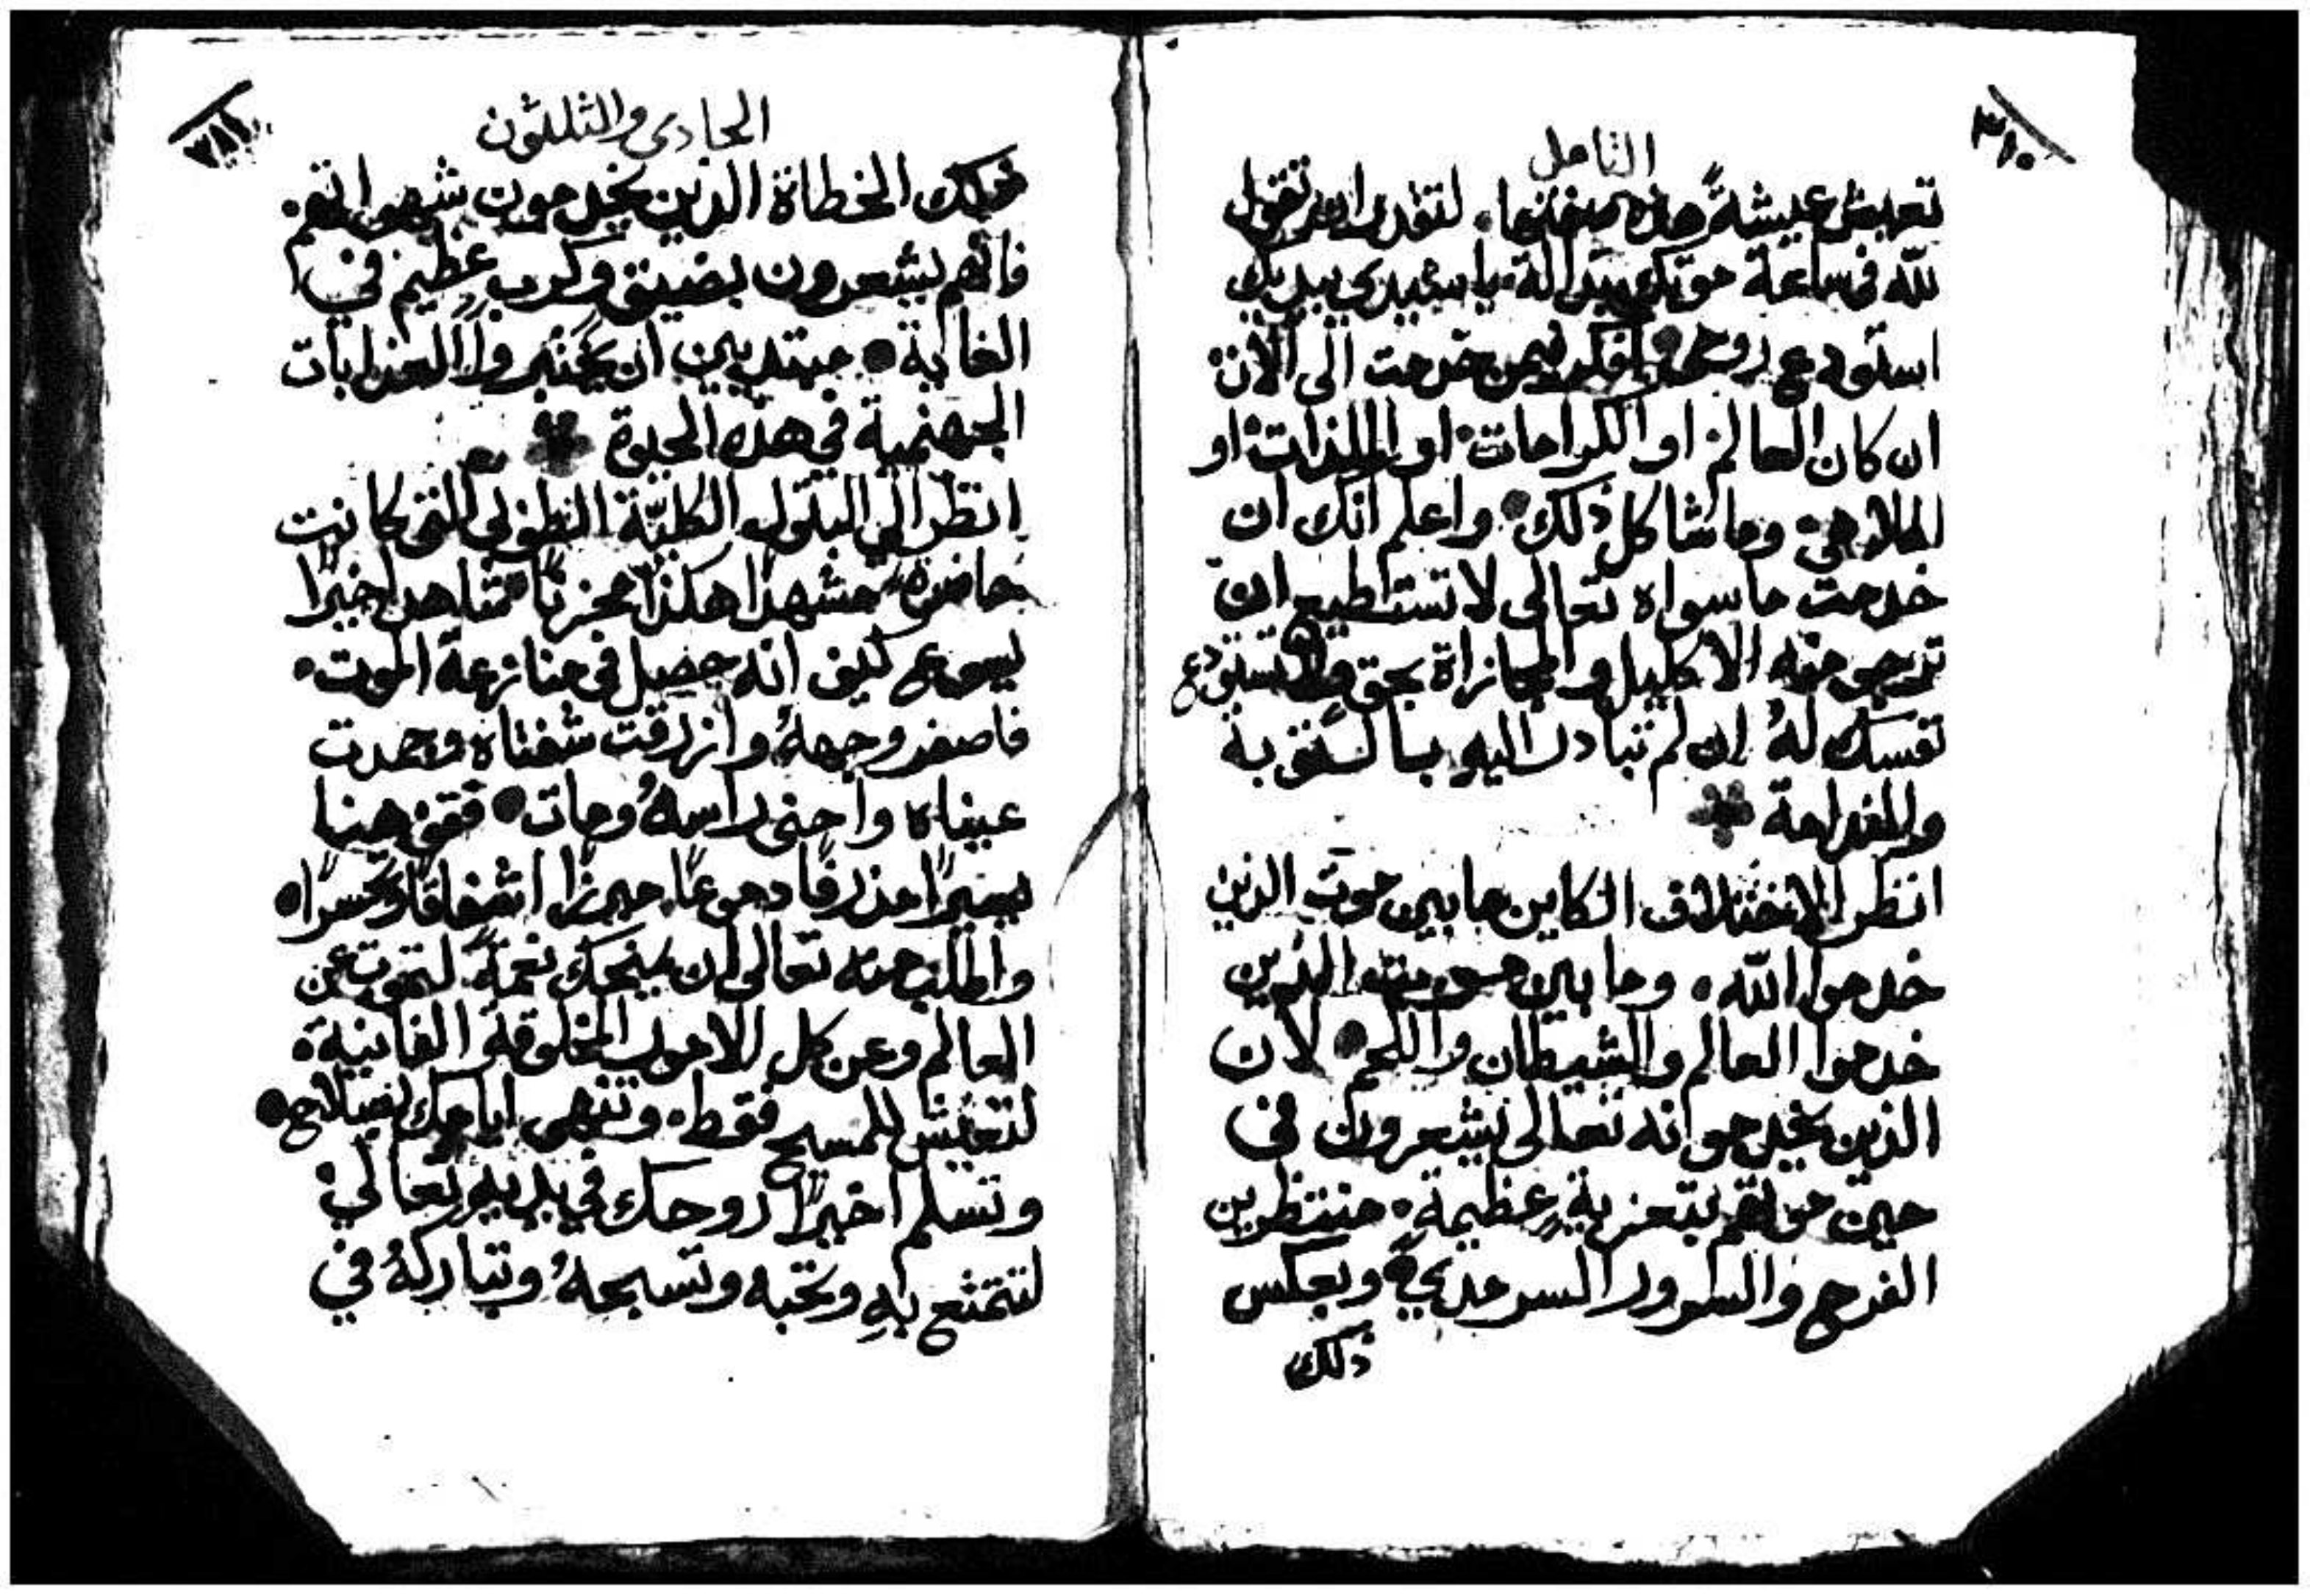 التامل
تعيش عيشةً هذه صفتها. لتقدر ان تقول
لله في ساعة موتك بدالة. يا سيدي بيديك
استودع روحي وافكر فيمن خدمت الى الان
ان كان العالم او الكرامات او الملذات او
الملاهي وما شاكل ذلك واعلم انك ان
خدمت ما سواه تعالى لا تستطيع ان
ترجو منه الاكليل والمجازاة بحق ولا تستودع
نفسك لهُ ان لم تبادر اليهِ بالتوبة
والندامة
انظر الاختلاف الكاين ما بين موت الذين
خدموا الله. وما بين موت الذين
خدموا العالم والشيطان واللحم لان
الذين يخدمونه تعالى يشعرون في
حين موتهم بتعزيةٍ عظيمة. منتظرين
الفرح والسرور السرمدي وبعكس
ذلك
الحادي والثلثون
ذلك الخطاة الذين يخدمون شهواتهم.
فانهم يشعرون بضيق وكربٍ عظيم في
الغاية مبتديين ان يختبروا العذابات
الجهنمية في هذه الحيوة
انظر الى البتول الكليّة الطوبى التي كانت
حاضرة مشهدًا هكذا محزنًا تشاهد اخيرًا
يسوع كيف انه حصل في منازعة الموت.
فاصفر وجههُ وازرقت شفتاه وجمدت
عيناه واحنى راسهُ ومات فقف هنا
يسيرًا مذرفًا دموعًا مبرزًا اشفاقًا وتحسرًا
واطلب منه تعالى ان يمنحك نعمةً لتموت عن
العالم وعن كل الامور المخلوقة الفانية
لتعيش للمسيح فقط. وتنهي ايامك بصلاح
وتسلم اخيرًا روحك في يديهِ تعالى
لتتمتع بهِ وتحبه وتسبحهُ وتباركهُ في